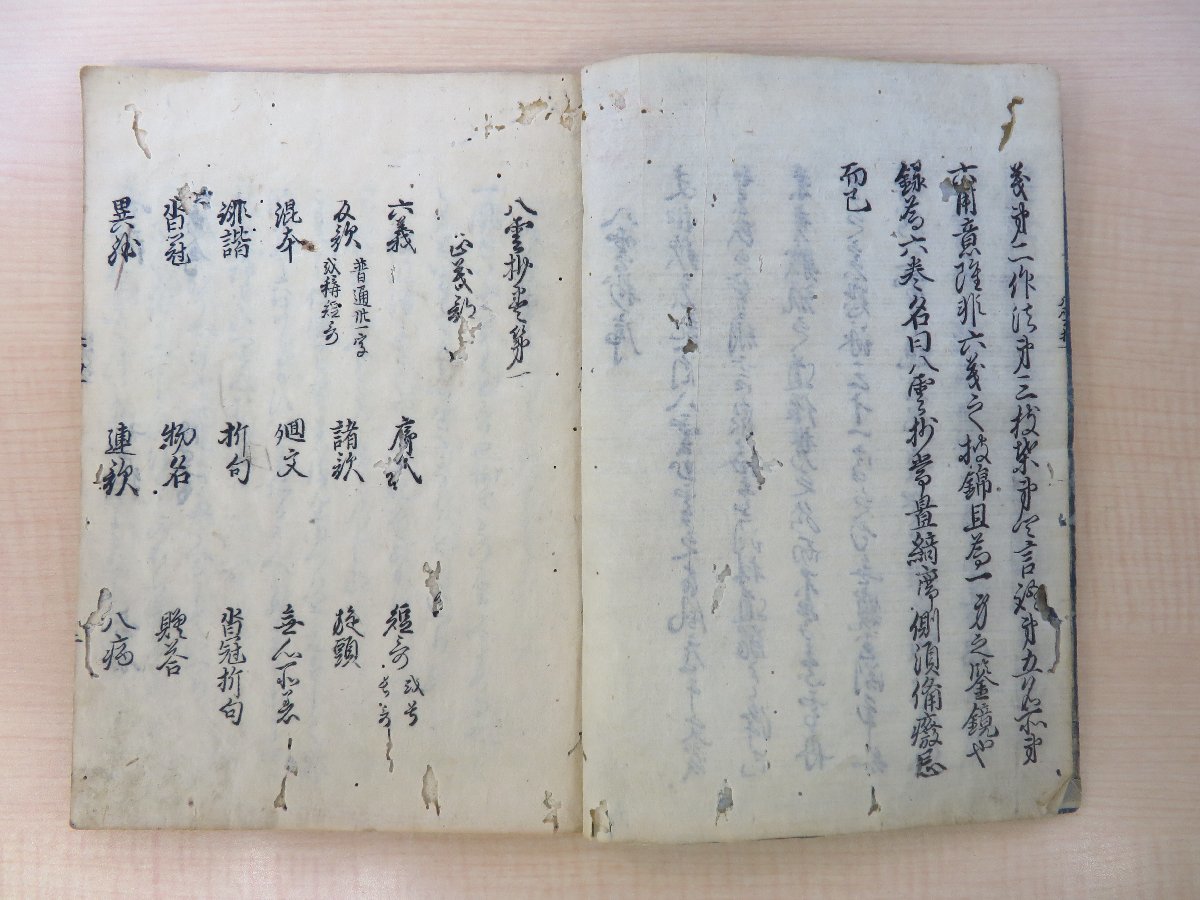 義第二作法第三枝葉第四言語第五名所第
六用意雖非六義之披錦且為一身之鑒鏡也
録為六巻名曰八雲抄常置綺席側須備癈忘
而已
八雲抄巻第一
正義部
六義 序代 短哥 或号長哥
反歌 普通此一字或称短哥 諸歌 旋頭
混本 廻文 無心所着
誹諧 折句 沓冠折句
沓冠 物名 贈答
異躰 連歌 八病